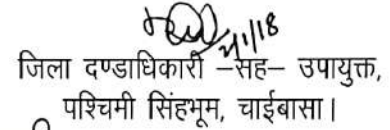 2/1/18
जिला दण्डाधिकारी –सह– उपायुक्त,
पश्चिमी सिंहभूम, चाईबासा।